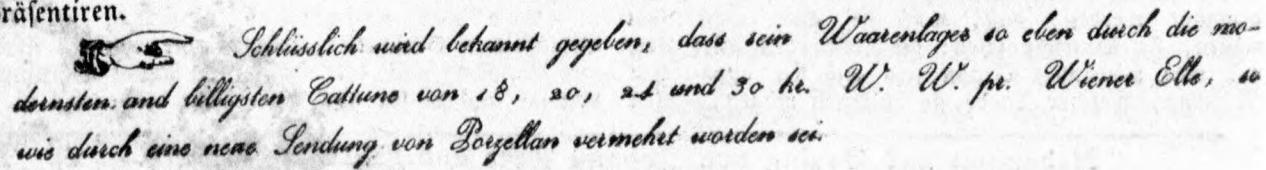 räsentiren.
Schlüsslich wird bekannt gegeben, dass sein Waarenlager so eben durch die mo-
dernsten und billigsten Cattune von 18, 20, 24 und 30 kr. W. W. pr. Wiener Elle, so
wie durch eine neue Sendung von Porzellan vermehrt worden sei.